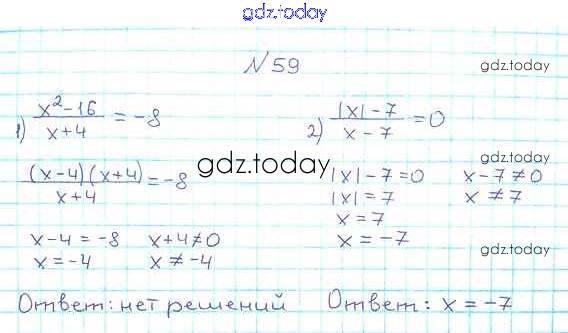 gdz.today
№ 59
gdz.today
1) (x²-16)/(x+4) = -8
2) (|x|-7)/(x-7) = 0
gdz.today
((x-4)(x+4))/(x+4) = -8
gdz.today
|x|-7=0 x-7≠0
|x|=7 x≠7
x=7
x=-7
x-4=-8 x+4≠0
x=-4 x≠-4
gdz.today
Ответ: нет решений
Ответ: x=-7